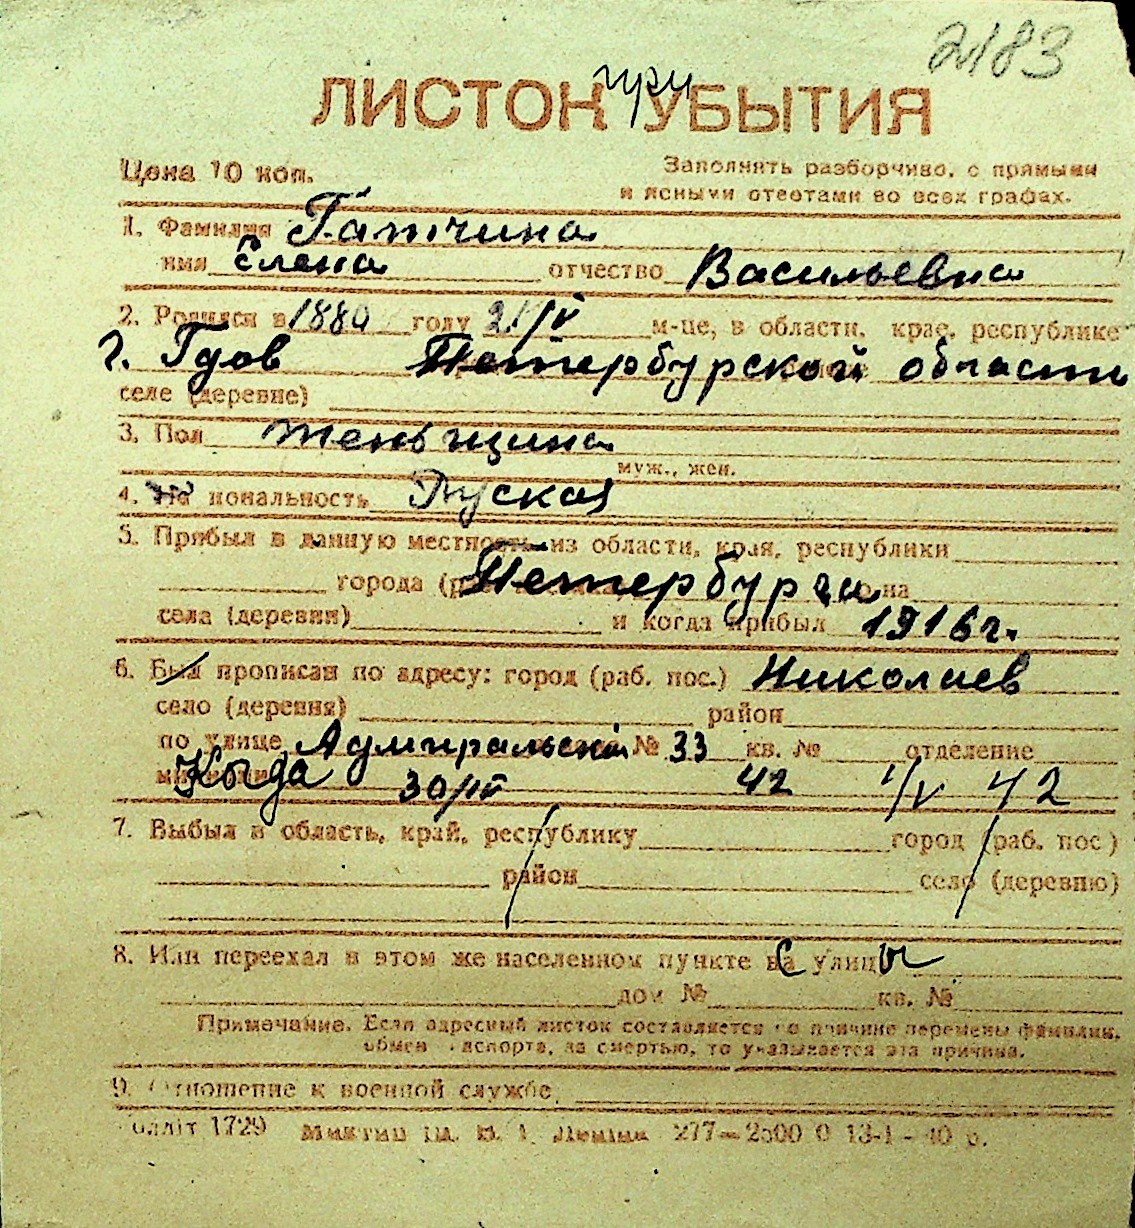 2183
ЛИСТОК при УБЫТИЯ
Цена 10 коп.
Заполнять разборчиво, с прямыми
и ясными ответами во всех графах.
1. Фамилия Гатчина
имя Елена отчество Васильевна
2. Родился в 1880 году 21/V м-це, в области, крае, республике
г. Гдов Петербурской области
селе (деревне)
3. Пол женьщина
муж., жен.
4. Национальность Руская
5. Прибыл в данную местность из области, края, республики
города Петербурга
села (деревни) и когда прибыл 1916 г.
6. Был прописан по адресу: город (раб. пос.) Николаев
село (деревня) район
по улице Адмиральской № 33 кв. № отделение
Когда 30/IV 42 1/V 42
7. Выбыл в область, край, республику город (раб. пос)
район село (деревню)
8. Или переехал в этом же населенном пункте с улицы
дом № кв. №
Примечание. Если адресный листок составляется по причине перемены фамилии,
обмен паспорта, за смертью, то указывается эта причина.
9. Отношение к военной службе
1729 277—2500 0 13-1-40 р.